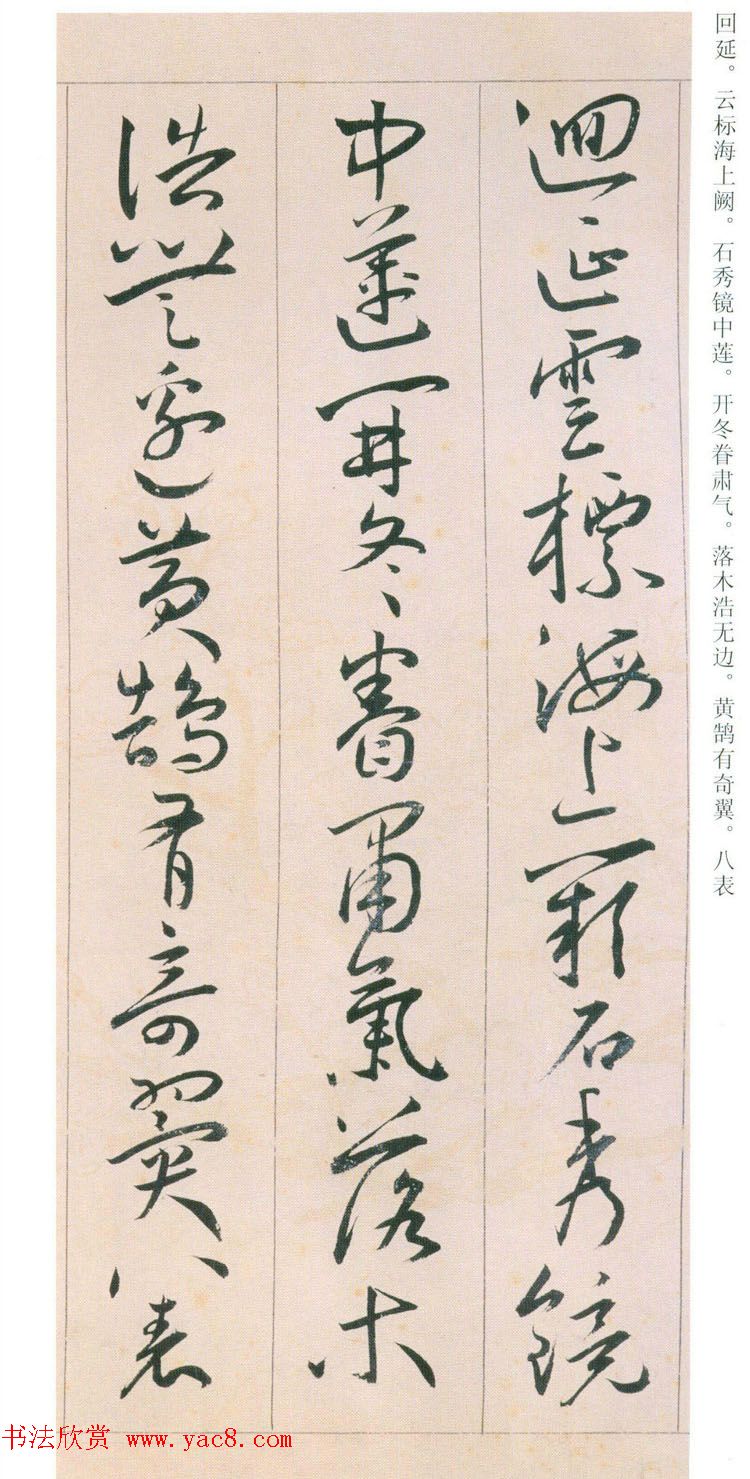 回延。云标海上阙。石秀镜中莲。开冬眷肃气。落木浩无边。黄鹄有奇翼。八表
迴延雲標海上闕石秀鏡
中蓮開冬眷肅氣落木
浩無邊黃鵠有奇翼八表
书法欣赏 www.yac8.com